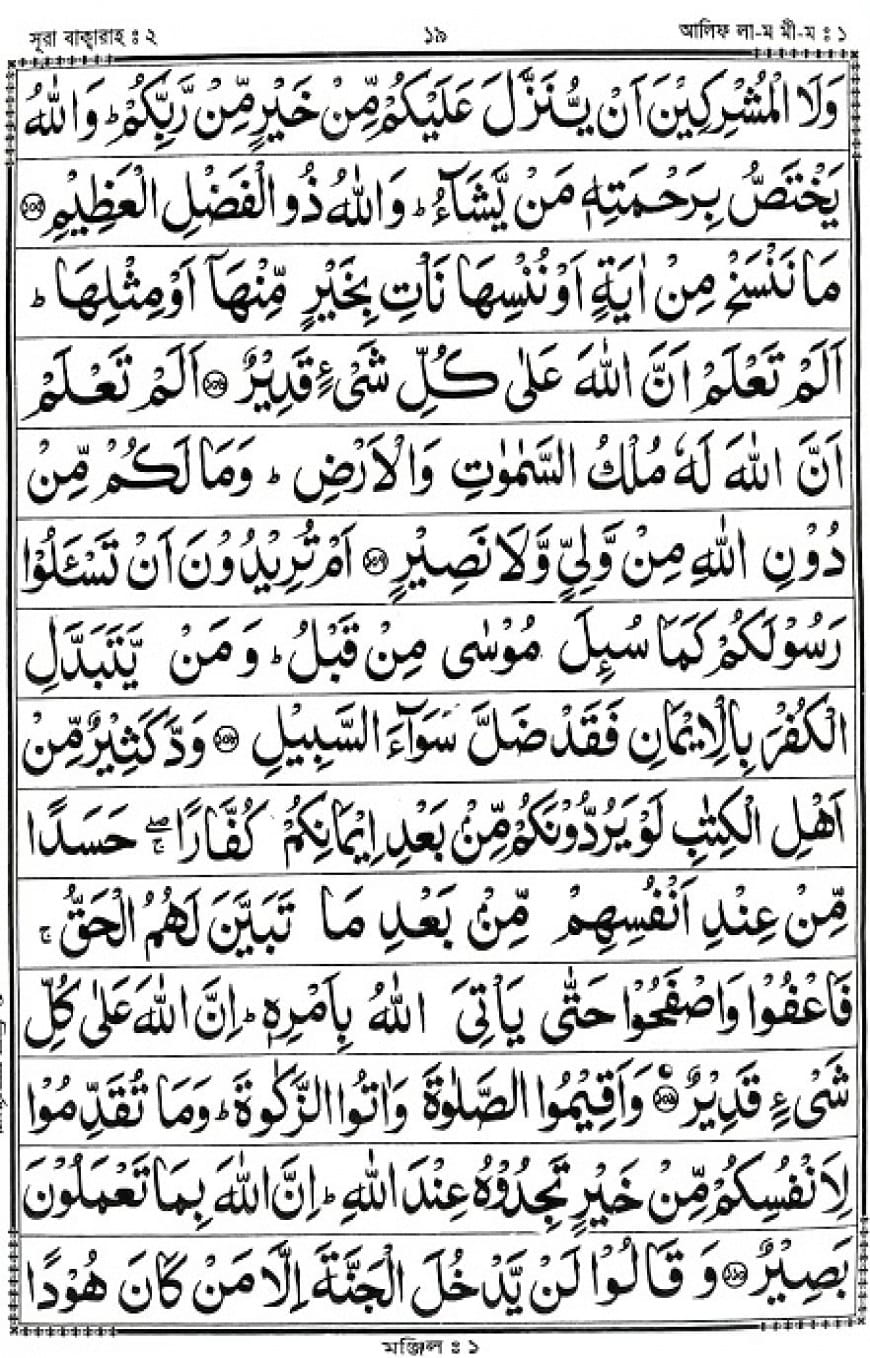 সূরা বাক্বারাহ ঃ ২ ১৯ আলিফ লা-ম মী-ম ঃ ১
وَلَا الْمُشْرِكِيْنَ اَنْ يُّنَزَّلَ عَلَيْكُمْ مِّنْ خَيْرٍ مِّنْ رَّبِّكُمْ ؕ وَاللّٰهُ
يَخْتَصُّ بِرَحْمَتِهٖ مَنْ يَّشَآءُ ؕ وَاللّٰهُ ذُو الْفَضْلِ الْعَظِيْمِ ১০৫
مَا نَنْسَخْ مِنْ اٰيَةٍ اَوْ نُنْسِهَا نَاْتِ بِخَيْرٍ مِّنْهَاۤ اَوْ مِثْلِهَا ؕ
اَلَمْ تَعْلَمْ اَنَّ اللّٰهَ عَلٰى كُلِّ شَىْءٍ قَدِيْرٌ ১০৬ اَلَمْ تَعْلَمْ
اَنَّ اللّٰهَ لَهٗ مُلْكُ السَّمٰوٰتِ وَالْاَرْضِ ؕ وَمَا لَكُمْ مِّنْ
دُوْنِ اللّٰهِ مِنْ وَّلِىٍّ وَّلَا نَصِيْرٍ ১০৭ اَمْ تُرِيْدُوْنَ اَنْ تَسْـَٔلُوْا
رَسُوْلَكُمْ كَمَا سُىِٕلَ مُوْسٰى مِنْ قَبْلُ ؕ وَمَنْ يَّتَبَدَّلِ
الْكُفْرَ بِالْاِيْمَانِ فَقَدْ ضَلَّ سَوَآءَ السَّبِيْلِ ১০৮ وَدَّ كَثِيْرٌ مِّنْ
اَهْلِ الْكِتٰبِ لَوْ يَرُدُّوْنَكُمْ مِّنْۢ بَعْدِ اِيْمَانِكُمْ كُفَّارًا ۖۚ حَسَدًا
مِّنْ عِنْدِ اَنْفُسِهِمْ مِّنْۢ بَعْدِ مَا تَبَيَّنَ لَهُمُ الْحَقُّ ۚ
فَاعْفُوْا وَاصْفَحُوْا حَتّٰى يَاْتِىَ اللّٰهُ بِاَمْرِهٖ ؕ اِنَّ اللّٰهَ عَلٰى كُلِّ
شَىْءٍ قَدِيْرٌ ১০৯ وَاَقِيْمُوا الصَّلٰوةَ وَاٰتُوا الزَّكٰوةَ ؕ وَمَا تُقَدِّمُوْا
لِاَنْفُسِكُمْ مِّنْ خَيْرٍ تَجِدُوْهُ عِنْدَ اللّٰهِ ؕ اِنَّ اللّٰهَ بِمَا تَعْمَلُوْنَ
بَصِيْرٌ ১১০ وَقَالُوْا لَنْ يَّدْخُلَ الْجَنَّةَ اِلَّا مَنْ كَانَ هُوْدًا
মঞ্জিল ঃ ১